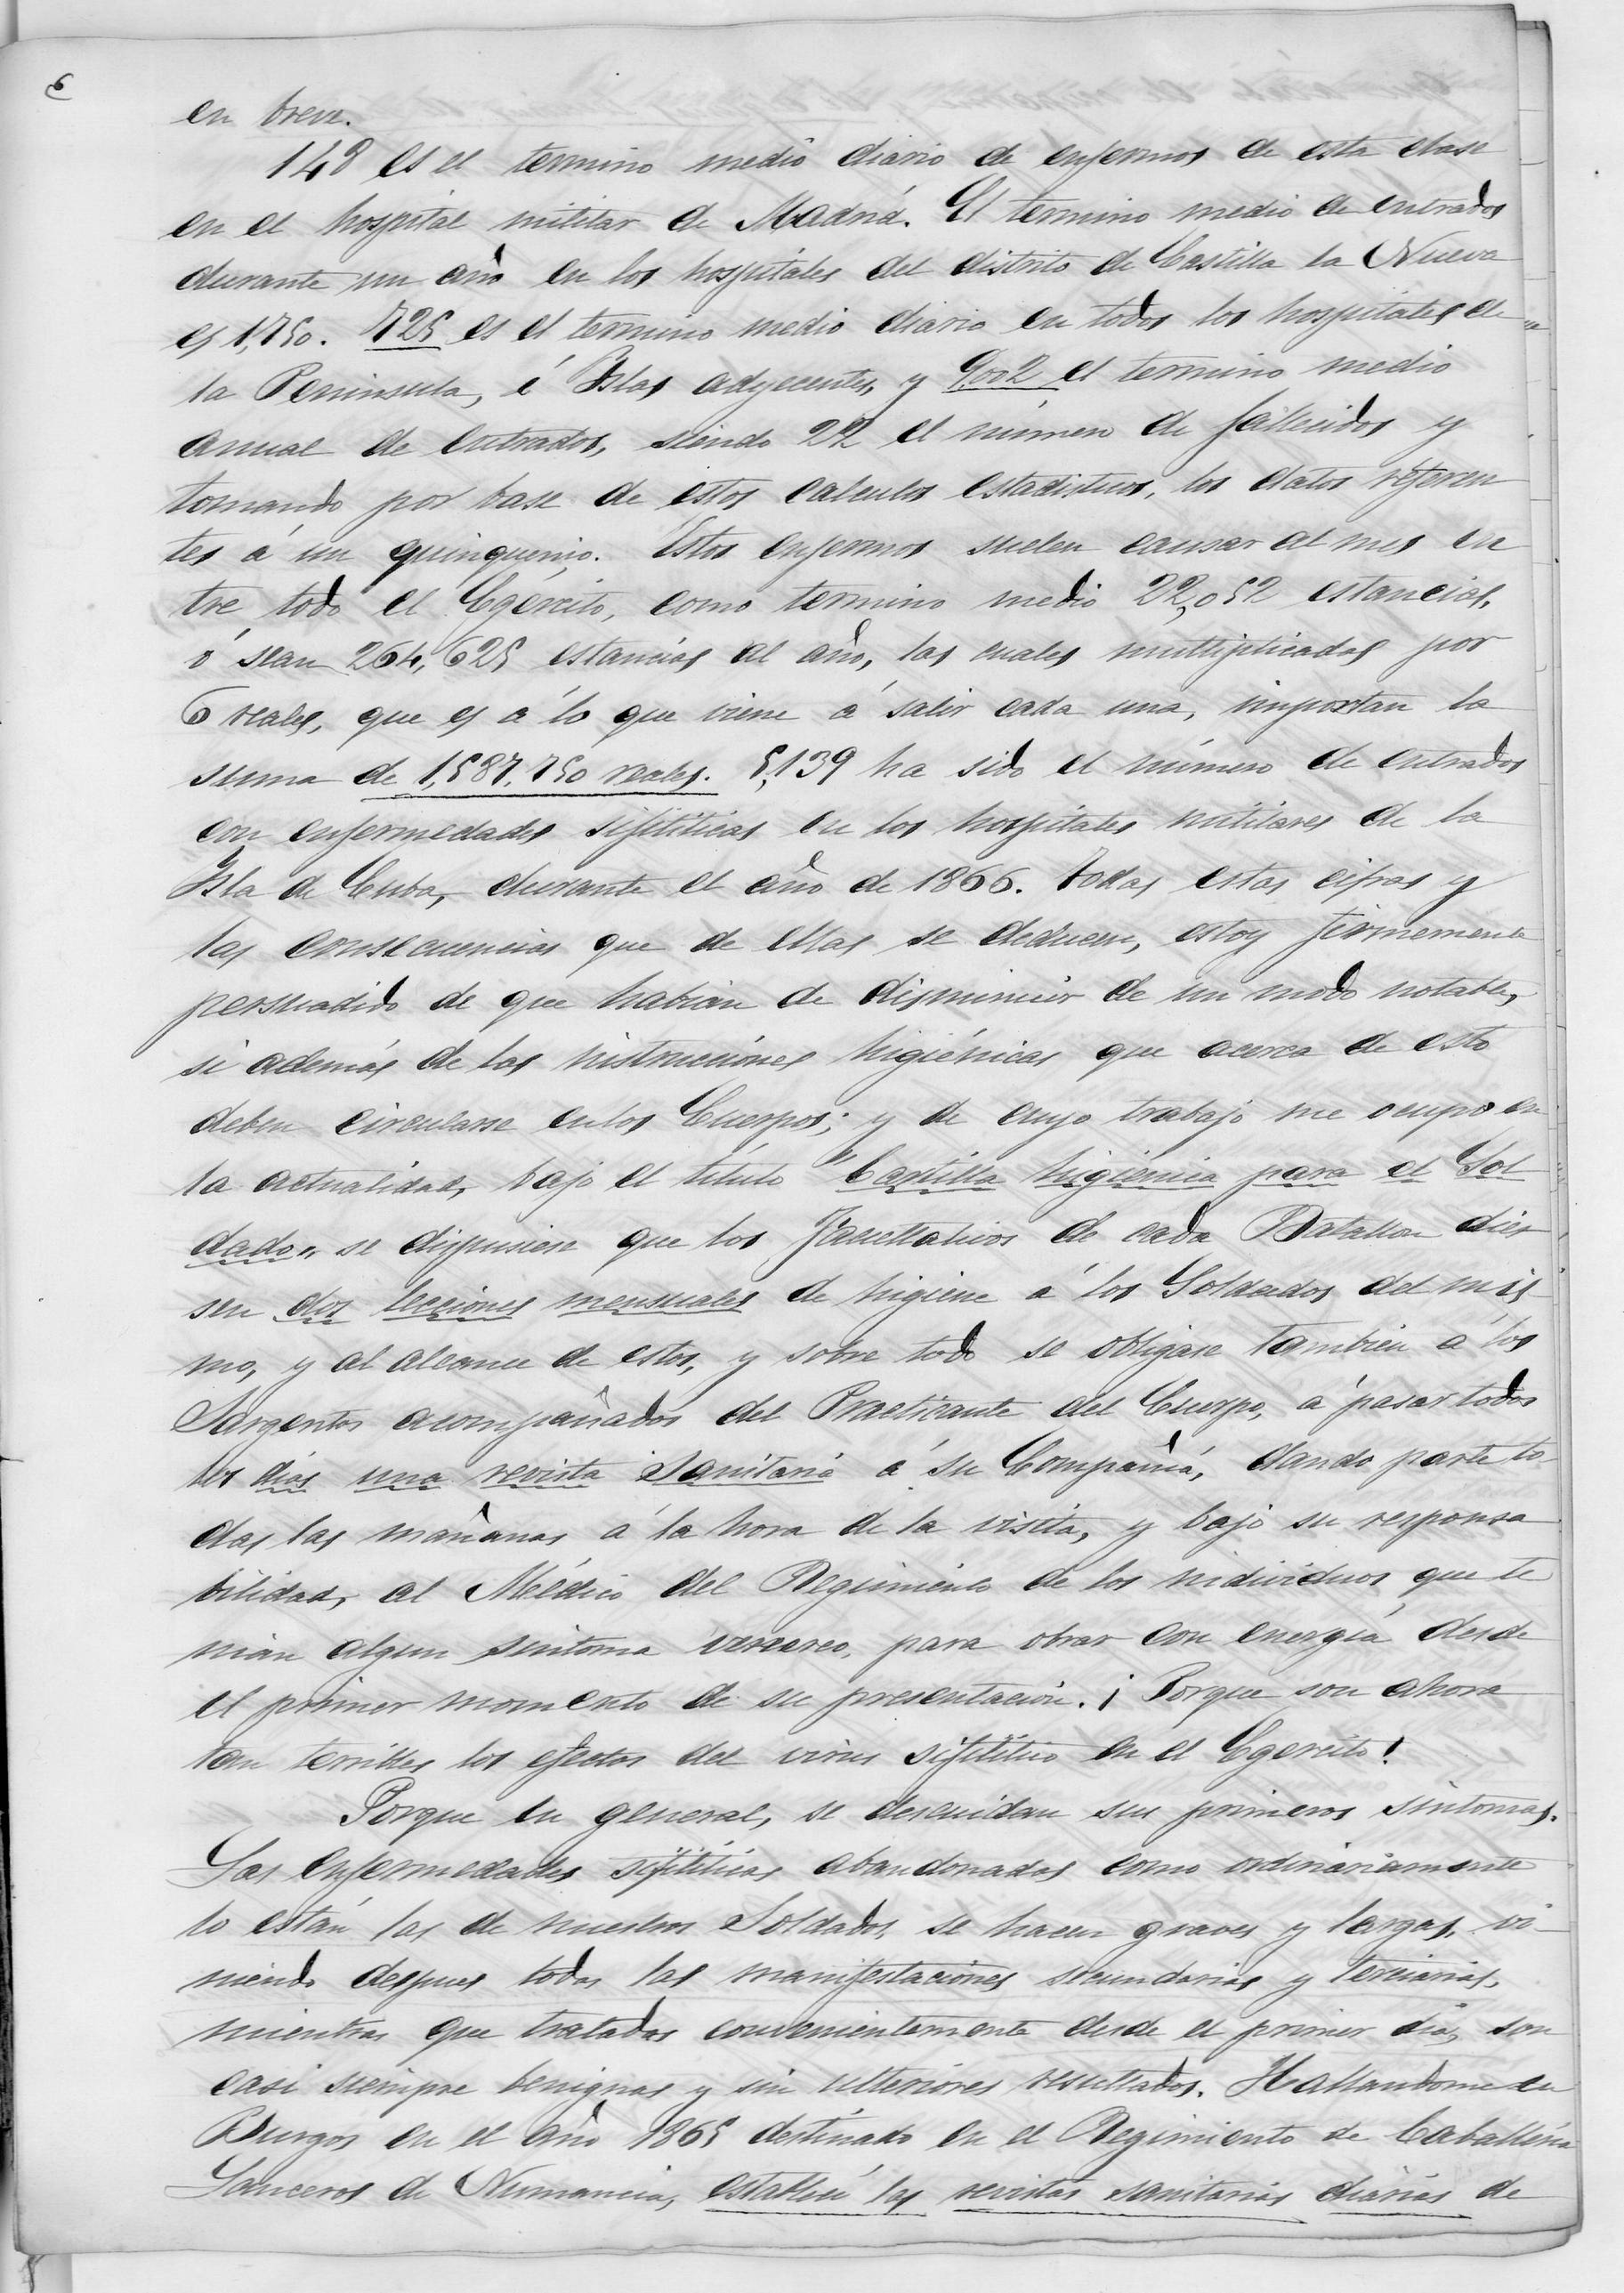 6
en breve.
148 es el termino medio diario de enfermos de esta clase
en el hospital militar de Madrid. El termino medio de entrados
durante un año en los hospitales del distrito de Castilla la Nueva
es 1,750. 725 es el termino medio diario en todos los hospitales de
la Peninsula, é Islas adyecentes, y 9,002 el termino medio
anual de entrados, siendo 22 el número de fallecidos y
tomando por base de estos calculos estadisticos, los datos referen
tes á un quinquenio. Estos enfermos suelen causar al mes en
tre todo el Egército, como termino medio 22,052 estancias,
ó sean 264,625 estancias al año, las cuales multiplicadas por
6 reales, que es á lo que viene á salir cada una, importan la
suma de 1,587,750 reales. 5,139 ha sido el número de entrados
con enfermedades sifiliticas en los hospitales militares de la
Isla de Cuba, durante el año de 1866. Todas estas cifras y
las consecuencias que de ellas se deducen, estoy firmemente
persuadido de que habian de disminuir de un modo notable,
si además de las instrucciones higiénicas que acerca de esto
deben circularse en los Cuerpos; y de cuyo trabajo me ocupo en
la actualidad, bajo el titulo "Cartilla higienica para el Sol
dado" se dispusiese que los Facultativos de cada Batallon die
sen dos lecciones mensuales de higiene á los Soldados del mis
mo, y al alcance de estos, y sobre todo se obligase tambien á los
Sargentos acompañados del Practicante del Cuerpo, á pasar todos
los dias una revista sanitaria á su Compañia, dando parte to-
das las mañanas á la hora de la visita, y bajo su responsa
bilidad, al Médico del Regimiento de los individuos que te
nian algun sintoma venereo, para obrar con energia desde
el primer momento de su presentacion. ¡Porque son ahora
tan terribles los efectos del virus sifilitico en el Egercito!
Porque en general, se descuidan sus primeros sintomas.
Las enfermedades sifiliticas abandonadas como ordinariamente
lo están las de nuestros Soldados, se hacen graves y largas, vi-
niendo despues todas las manifestaciones secundarias y terciarias,
mientras que tratadas convenientemente desde el primer dia, son
casi siempre benignas y sin ulteriores resultados. Hallandome en
Burgos en el año 1865 destinado en el Regimiento de Caballeria
Lanceros de Numancia, establecí las revistas sanitarias diarias de